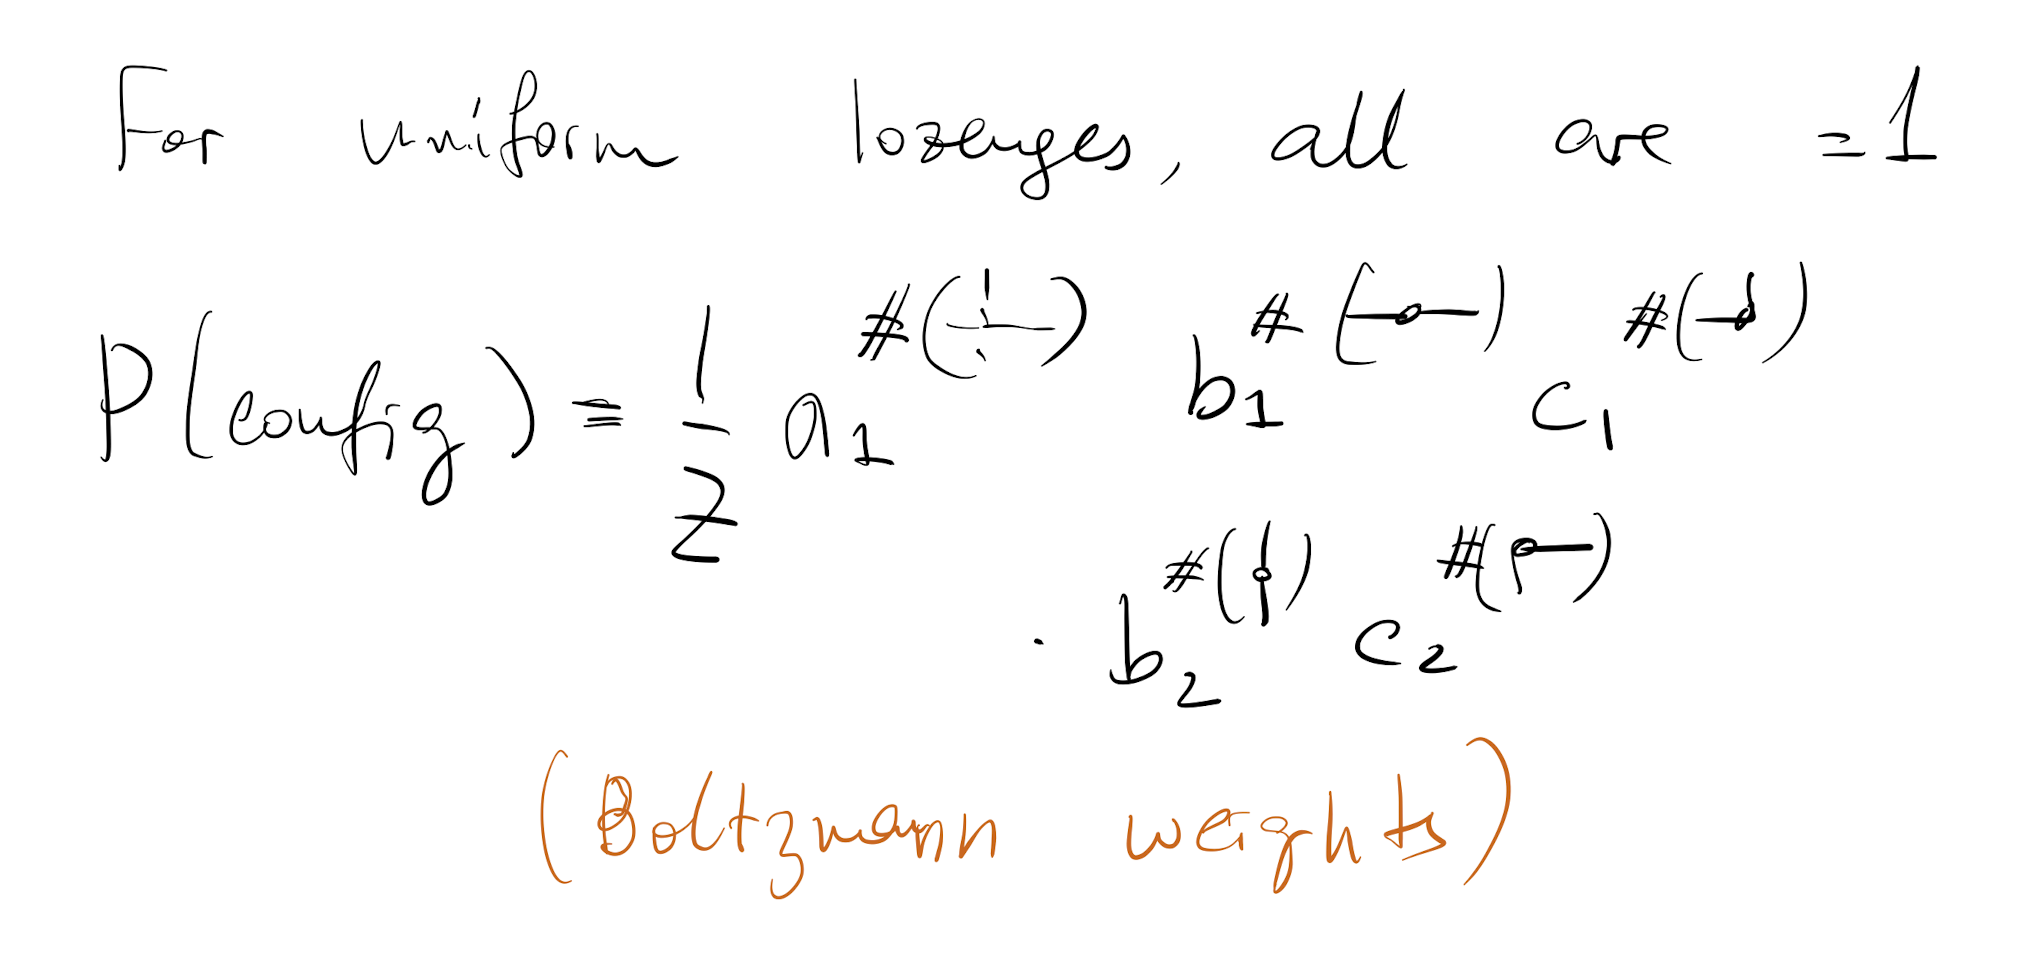 For uniform lozenges, all are =1
P(config) = 1/Z a₁^#( ) b₁^#( ) c₁^#( )
· b₂^#( ) c₂^#( )
(Boltzmann weights)